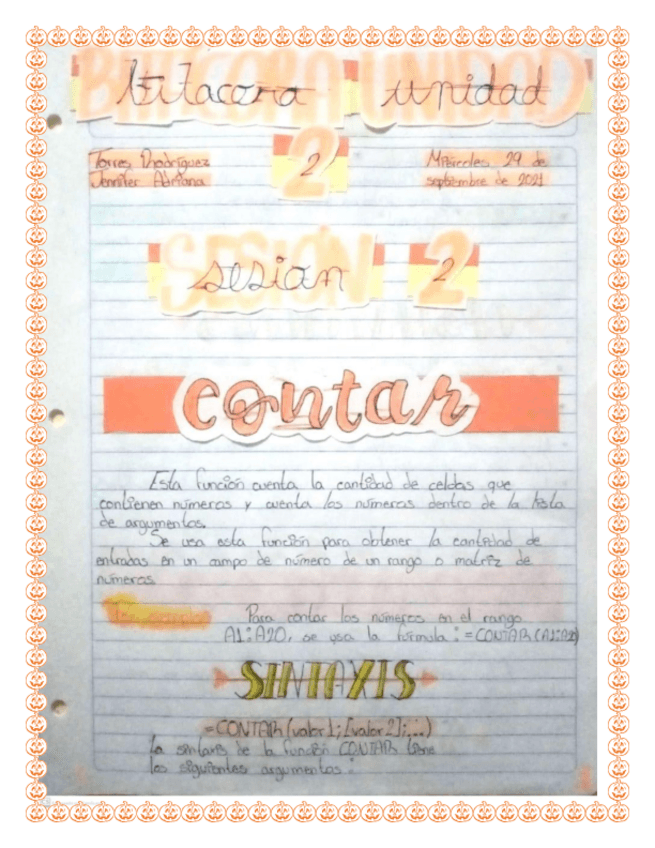 bitacora unidad
2
Torres Rhodríguez
Jennifer Adriana
Miércoles 29 de
septiembre de 2021
SESIÓN
sesion 2
contar
Esta función cuenta la cantidad de celdas que
contienen números y cuenta los números dentro de la lista
de argumentos.
Se usa esta función para obtener la cantidad de
entradas en un campo de número de un rango o matriz de
números.
Por ejemplo
Para contar los números en el rango
A1:A20, se usa la fórmula: =CONTAR(A1:A2)
SINTAXIS
=CONTAR(valor1;[valor2];...)
La sintaxis de la función CONTAR tiene
los siguientes argumentos: